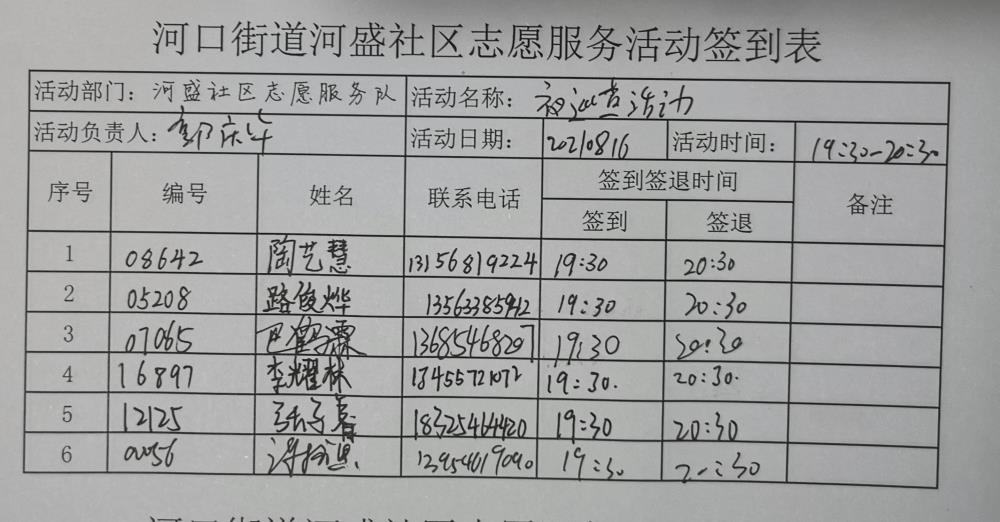 河口街道河盛社区志愿服务活动签到表
活动部门：河盛社区志愿服务队 活动名称：
活动负责人： 活动日期： 20210816 活动时间： 19:30-20:30
序号 编号 姓名 联系电话 签到签退时间 备注
签到 签退
1 08642 陶艺慧 13156819224 19:30 20:30
2 05208 路俊烨 13563385942 19:30 20:30
3 07065 巴鹤霖 13685468207 19:30 20:30
4 16897 李耀林 18455721072 19:30. 20:30.
5 12125 18325464420 19:30 20:30
6 19:30 20:30